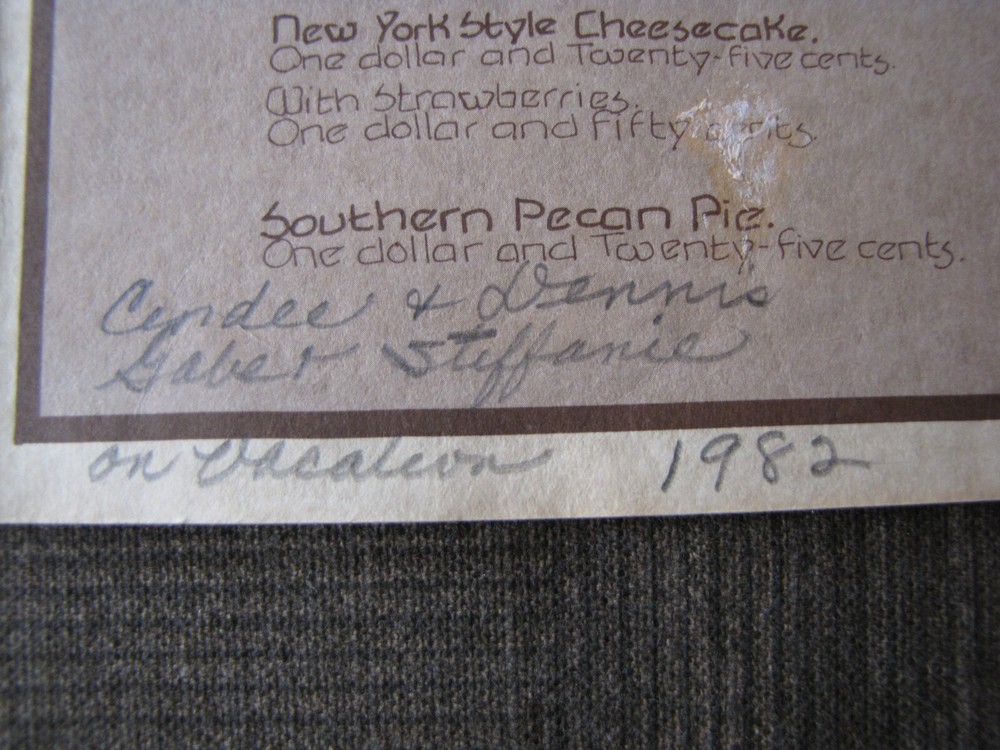 New York Style Cheesecake.
One dollar and Twenty-five cents.
With Strawberries.
One dollar and fifty cents.
Southern Pecan Pie.
One dollar and Twenty-five cents.
Cyndee & Dennis
Gaber Steffanie
on Vacation 1982